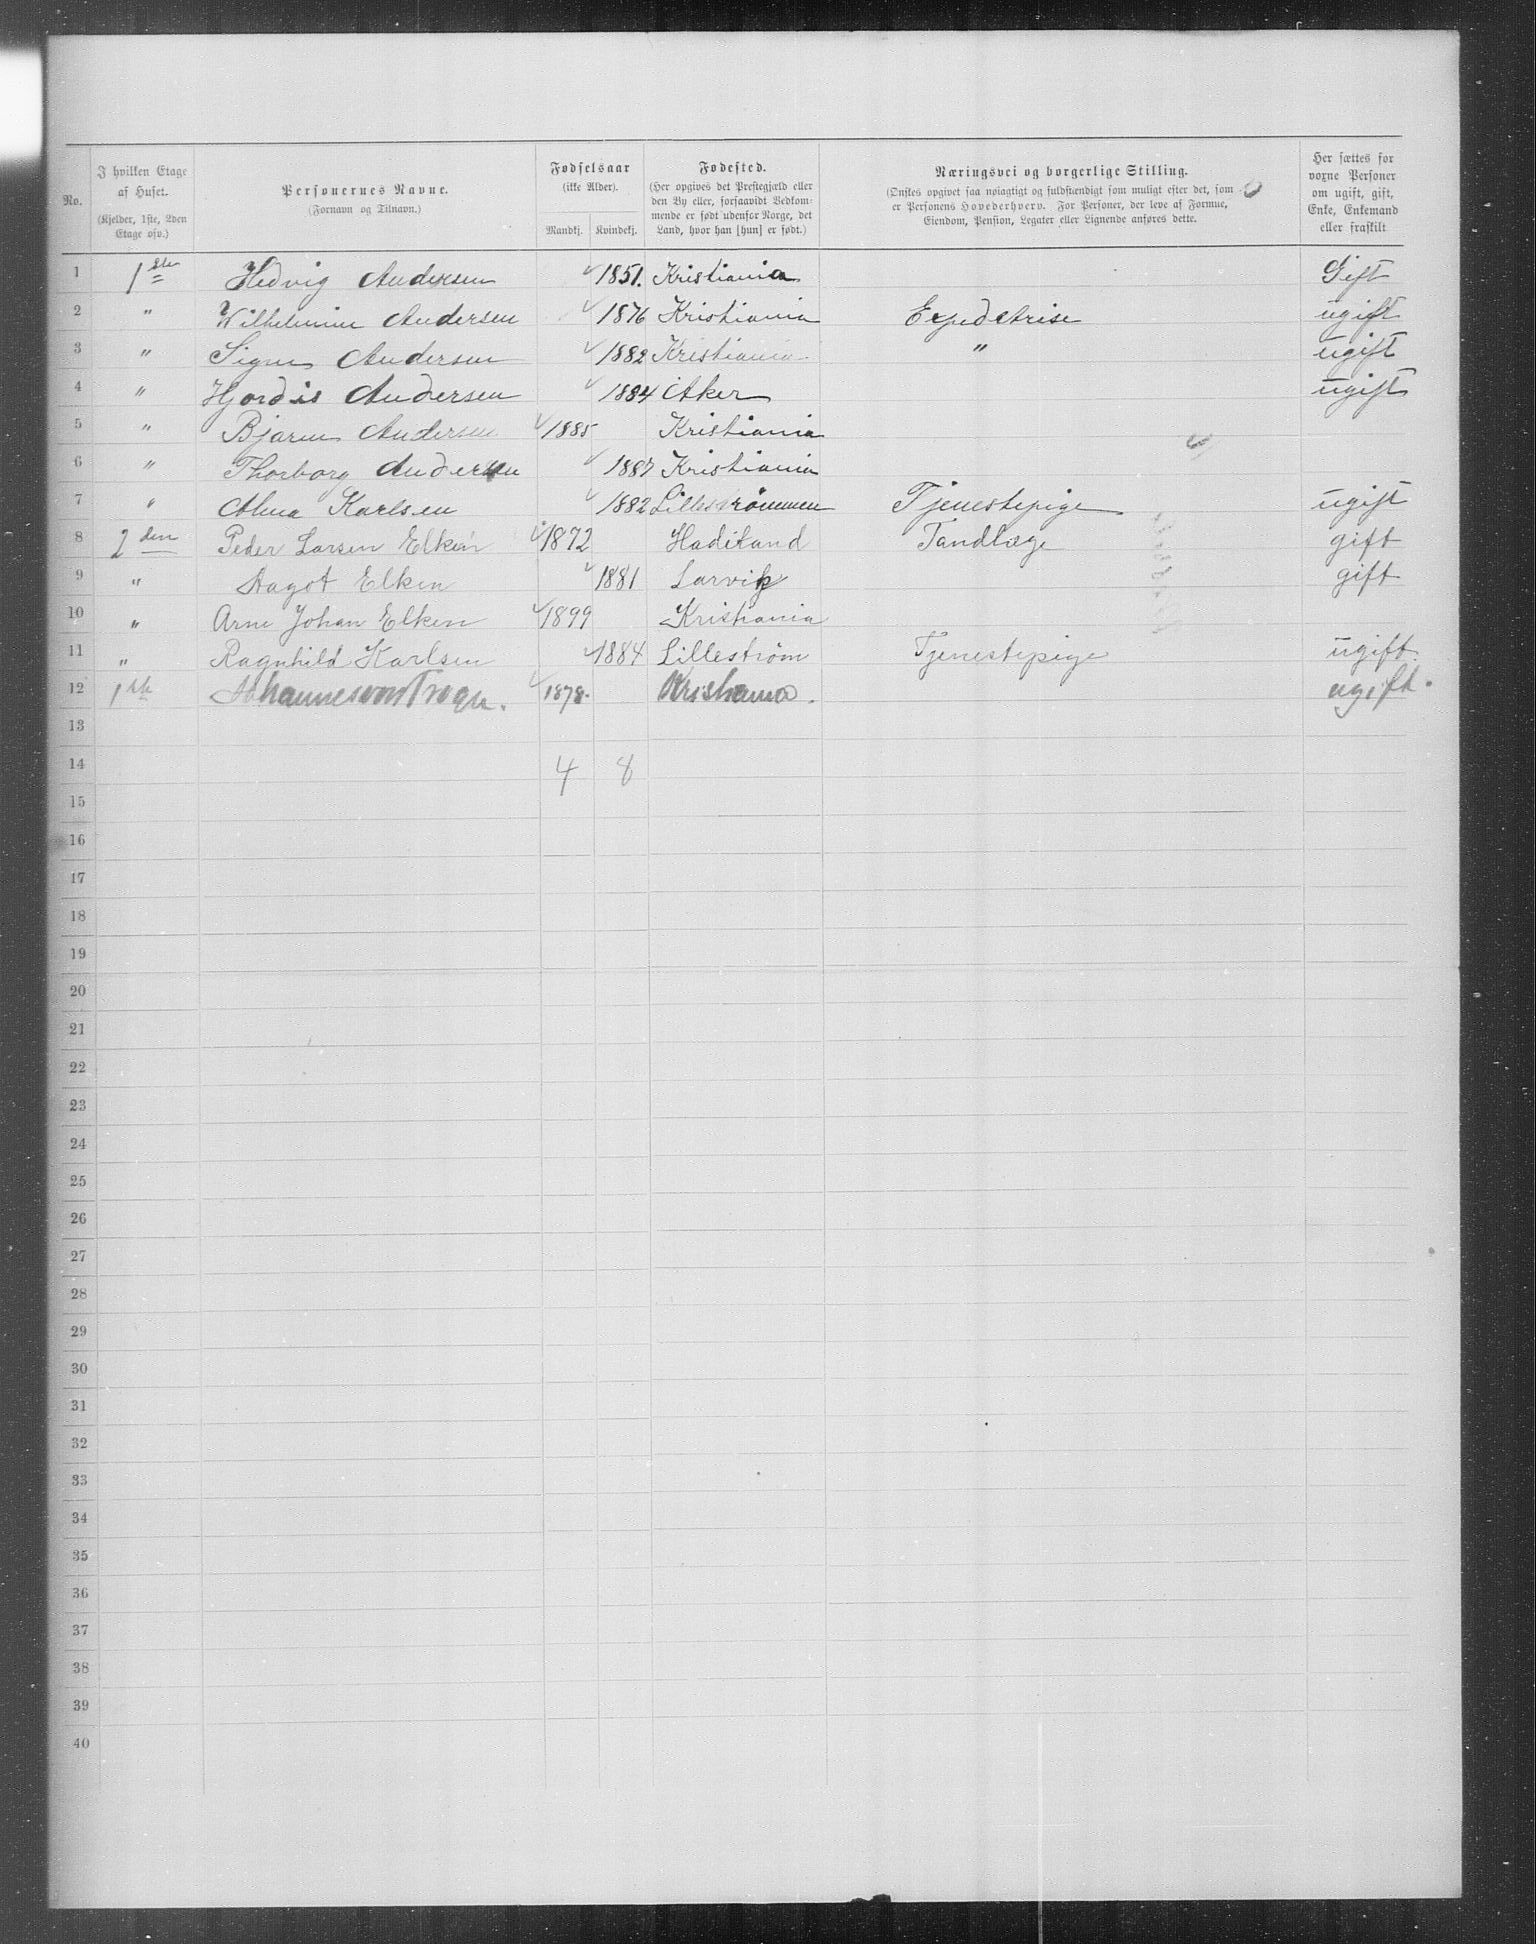 No. | I hvilken Etage af Huset. (Kjelder, 1ste, 2den Etage osv.) | Personernes Navne. (Fornavn og Tilnavn.) | Fødselsaar (ikke Alder). Mandkj. | Kvindekj. | Fødested. (Her opgives det Prestegjæld eller den By eller, forsaavidt Vedkommende er født udenfor Norge, det Land, hvor han [hun] er født.) | Næringsvei og borgerlige Stilling. (Ønskes opgivet saa nøiagtigt og fuldstændigt som muligt efter det, som er Personens Hovederhverv. For Personer, der leve af Formue, Eiendom, Pension, Legater eller Lignende anføres dette. | Her sættes for voxne Personer om ugift, gift, Enke, Enkemand eller fraskilt
1 1ste Hedvig Andersen 1851. Kristiania Gift
2 " Wilhelmine Andersen 1876 Kristiania Expeditrise ugift
3 " Signe Andersen 1882 Kristiania " ugift
4 " Hjordis Andersen 1884 Aker ugift
5 " Bjarne Andersen 1885 Kristiania
6 " Thorborg Andersen 1887 Kristiania
7 " Alma Karlsen 1882 Lillestrømmen Tjenestepige ugift
8 2den Peder Larsen Elken 1872 Hadeland Tandlæge gift
9 " Magot Elken 1881 Larvik gift
10 " Arne Johan Elken 1899 Kristiania
11 " Ragnhild Karlsen 1884 Lillestrøm Tjenestepige ugift
12 1ste Johannes von 1878. Kristiania. ugift.
13
14 4 8
15
16
17
18
19
20
21
22
23
24
25
26
27
28
29
30
31
32
33
34
35
36
37
38
39
40